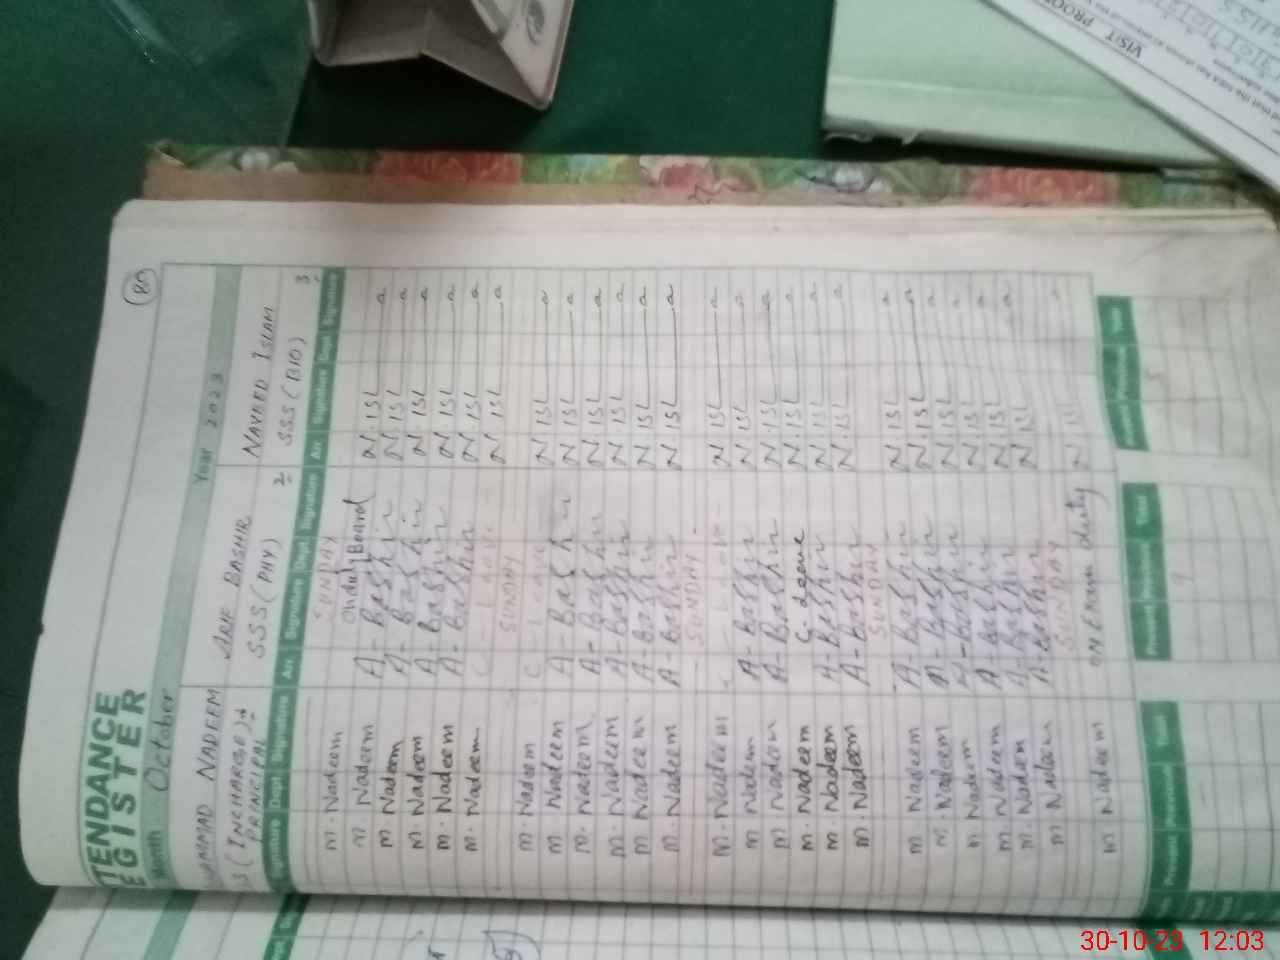 ATTENDANCE
REGISTER
80
Month October Year 2023
MUHAMMAD NADEEM
SSS (INCHARGE) 1
PRINCIPAL
ARIF BASHIR
SSS (PHY) 2
NAVEED ISLAM
SSS (BIO) 3
Signature Dept Signature Arr. Signature Dept Signature Arr. Signature Dept Signature
M. Nadeem SUNDAY
M Nadeem On duty Board N. ISL
M Nadeem A-Bashir N. ISL
M. Nadeem A-Bashir N. ISL
M. Nadeem A-Bashir N. ISL
M. Nadeem A-Bashir N. ISL
C - Leave N. ISL
SUNDAY
M. Nadeem C - Leave N ISL
M. Nadeem A-Bashir N ISL
M. Nadeem A-Bashir N ISL
M. Nadeem A-Bashir N ISL
M. Nadeem A-Bashir N ISL
M. Nadeem A-Bashir N ISL
SUNDAY
M. Nadeem C - Leave N ISL
M Nadeem A-Bashir N ISL
M. Nadeem A-Bashir N. ISL
M. Nadeem C. Leave N. ISL
M. Nadeem A-Bashir N. ISL
M. Nadeem A-Bashir N. ISL
SUNDAY
M Nadeem A-Bashir N ISL
M. Nadeem A-Bashir N ISL
M Nadeem A-Bashir N ISL
M Nadeem A Bashir N ISL
M Nadeem A-Bashir N ISL
M Nadeem A-Bashir
SUNDAY
M Nadeem ON Exam duty N ISL
Present Previous Total Present Previous Total Present Previous Total
VISIT PROOF
30-10-23 12:03